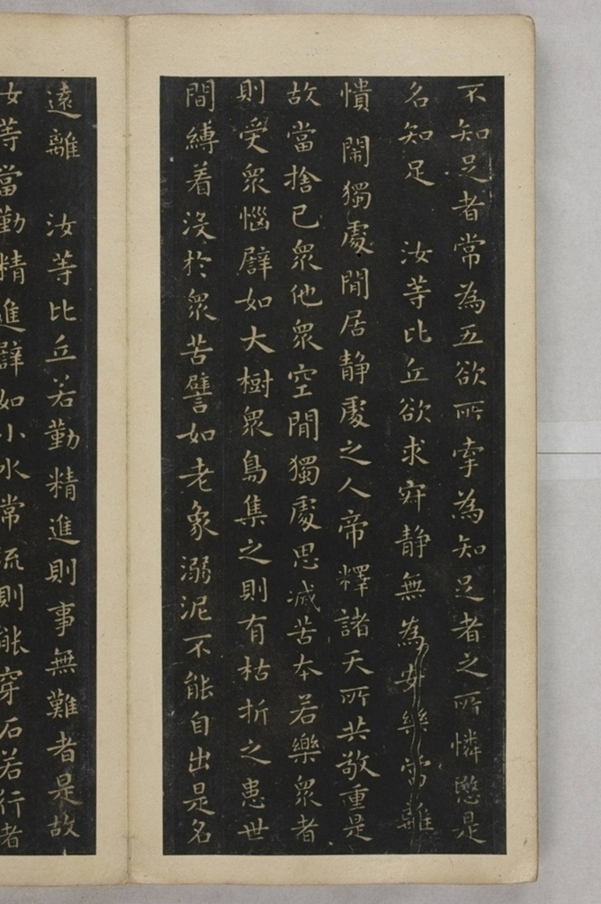 不知足者常為五欲所牽為知足者之所憐愍是
名知足　汝等比丘欲求寂静無為安樂當離
憒　閙獨處閒居静處之人帝釋諸天所共敬重是
故當捨己衆他衆空閒獨處思滅苦本若樂衆者
則受衆惱譬如大樹衆鳥集之則有枯折之患世
間縛着没於衆苦譬如老象溺泥不能自出是名
遠離　汝等比丘若勤精進則事無難者是故
汝等當勤精進譬如小水常流則能穿石若行者